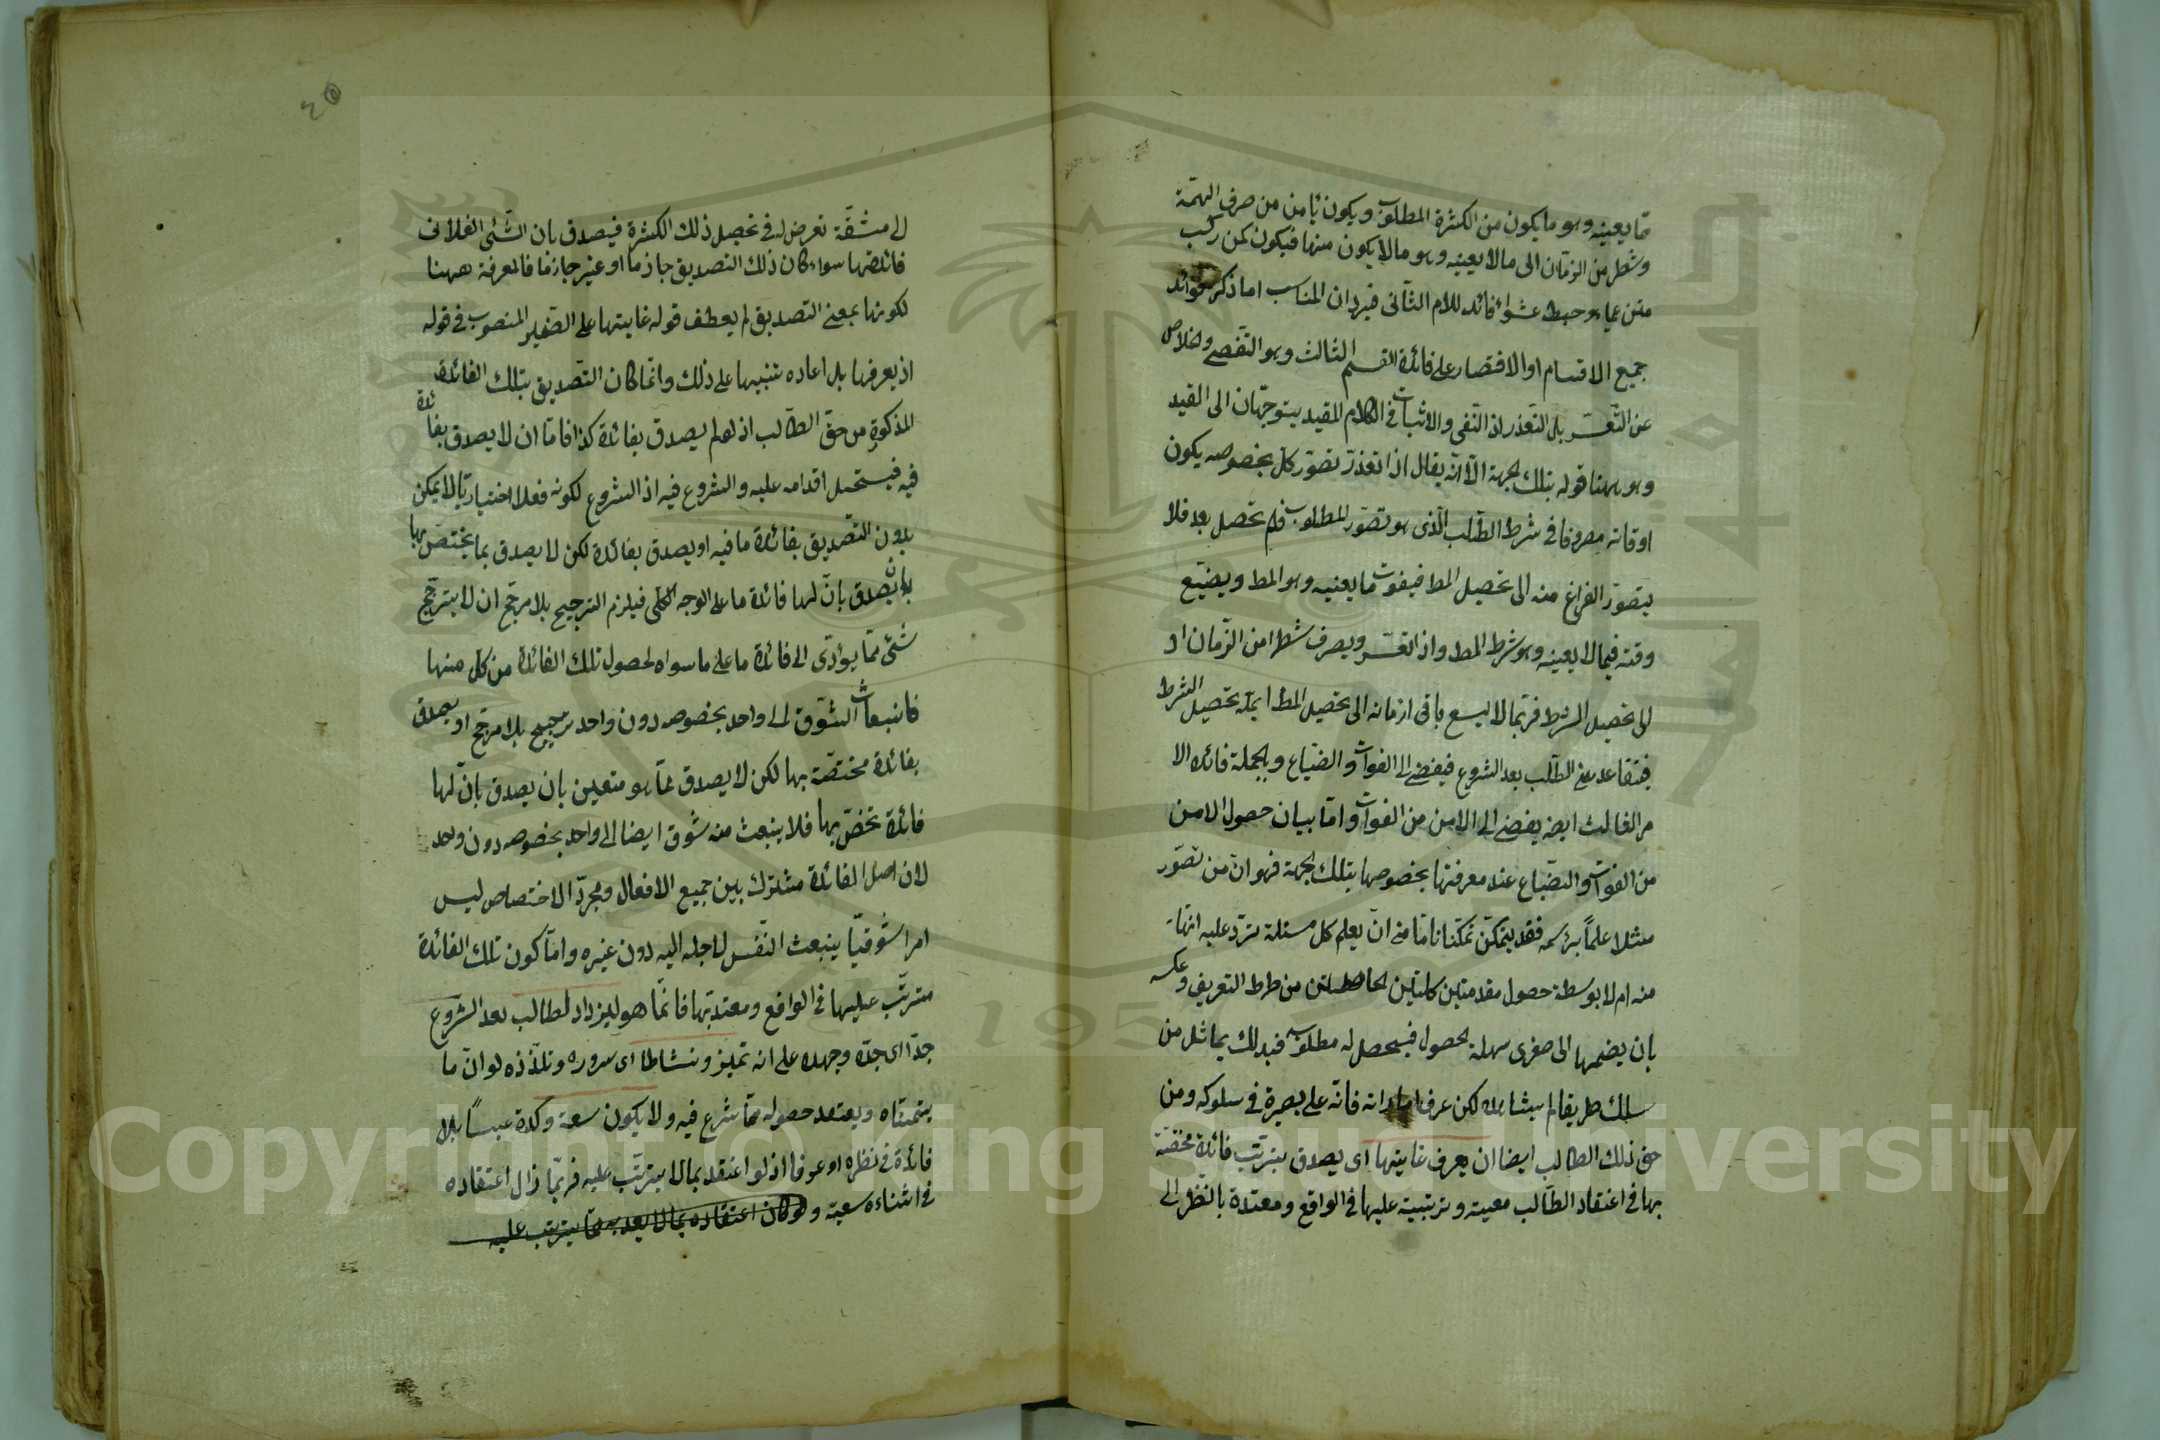 مما يعينه وهو ما يكون من الكثرة المطلوب ويكون يأمن من صرف الهمة
وشطر من الزمان الى ما لا يعينه وهو ما لا يكون منها فيكون كمن ركب
متن عمياء وحبط عشواء فائد للام الثانى فيرد ان المناسب اما ذكر فوائد
جميع الاقسام او الاقتصار على فائدة القسم الثالث وهو التقصى وخلاص
عن التعسر بل التعذر اذ النفى والاثبات فى الكلام المقيد يتوجهان الى القيد
وهو ههنا قوله بتلك الجهة الا انه يقال اذا تعذر تصور كل بخصوصه يكون
اوقاته مصروفا فى شرط الطلب الذى هو تصور المطلوب فلم تحصل بعد فلا
يتصور الفراغ منه الى تحصيل المط فيفوت ما يعنيه وهو المط ويضيع
وقته فيما لا يعينه وهو شرط المط واذا تعسر ويصرف شطرا من الزمان اد
الى تحصيل الشرط فربما لا يسع باقى ازمانه الى تحصيل المط ايمله تحصيل الشرط
فيتقاعد عن الطلب بعد الشروع فيفضى الى الفوات والضياع وبالجملة فائده الا
مر الثالث ايضه يفضى الى الامن من الفوات واما بيان حصول الامن
من الفوات والضياع عند معرفتها بخصوصها بتلك الجهة فهو ان من تصور
مثلا علما برسمه فقد يتمكن تمكنا تاما من ان يعلم كل مسئلة ترد عليه انها
منه ام لا بوسطة حصول مقدمتين كليتين الحاصلتين من طرد التعريف وعكسه
بان يضمها الى صغرى سهلة الحصول فيحصل له مطلوبه فبذلك يماثل من
سلك طريقا لم يشاهده لكن عرف اماراته فانه على بصيرة فى سلوكه ومن
حق ذلك الطالب ايضا ان يعرف غايتها اى يصدق بترتب فائدة مختصة
بها فى اعتقاد الطالب معينه وترتبية عليها فى الواقع ومعتدة بالنظر الى
الى مشقة تعرض له فى تحصيل ذلك الكثرة فيصدق بان الشئ الفلانى
فائدتها سواء كان ذلك التصديق جازما او غير جازما فالمعرفة ههنا
لكونها بمعنى التصديق لم يعطف قوله غايتها على الضمير المنصوب فى قوله
اذ يعرفها بل اعاده تنبيها على ذلك وانما كان التصديق بتلك الفائدة
المذكورة من حق الطالب اذ لو لم يصدق بفائدة كذا فاما ان لا يصدق بفائدة
فيه فيستحيل اقدامه عليه والشروع فيه اذ الشروع لكونه فعلا اختياريا لا يمكن
بدون التصديق بفائدة ما فيه او يصدق بفائدة لكن لا يصدق بما يختص بها
بان يصدق بان لها فائدة ما على الوجه الكلى فيلزم الترجيح بلا مرجح ان لا يترجح
شئ مما يوادى الى فائدة ما على ما سواه لحصول تلك الفائدة من كل منها
فانبعاث الشوق الى واحد بخصوصه دون واحد ترجيح بلا مرجح او يصدق
بفائدة مختصة بها لكن لا يصدق بما هو متعين بان يصدق بان لها
فائدة تختص بها فلا ينبعث منه شوق ايضا الى واحد بخصوصه دون واحد
لان اصل الفائدة مشترك بين جميع الافعال ومجرد الاختصاص ليس
امرا شوقيا ينبعث النفس لاجله اليه دون غيره واما كون تلك الفائدة
مترتب عليها فى الواقع ومعتد بها فانما هو ليزداد الطالب بعد الشروع
جدا اى جده وجهده على انه تميز ونشاطا اى سروره وتلذذه لو ان ما
يتمناه ويعتقد حصوله مما شرع فيه ولا يكون سعيه وكده عبثا بلا
فائدة فى نظره او عرفا اذ لو اعتقد بما لا يترتب عليه فربما زال اعتقاده
فى اثناء سعيه ولو كان اعتقاده بما لا يعد به مما يترتب عليه
Copyright © King Saud University
1957